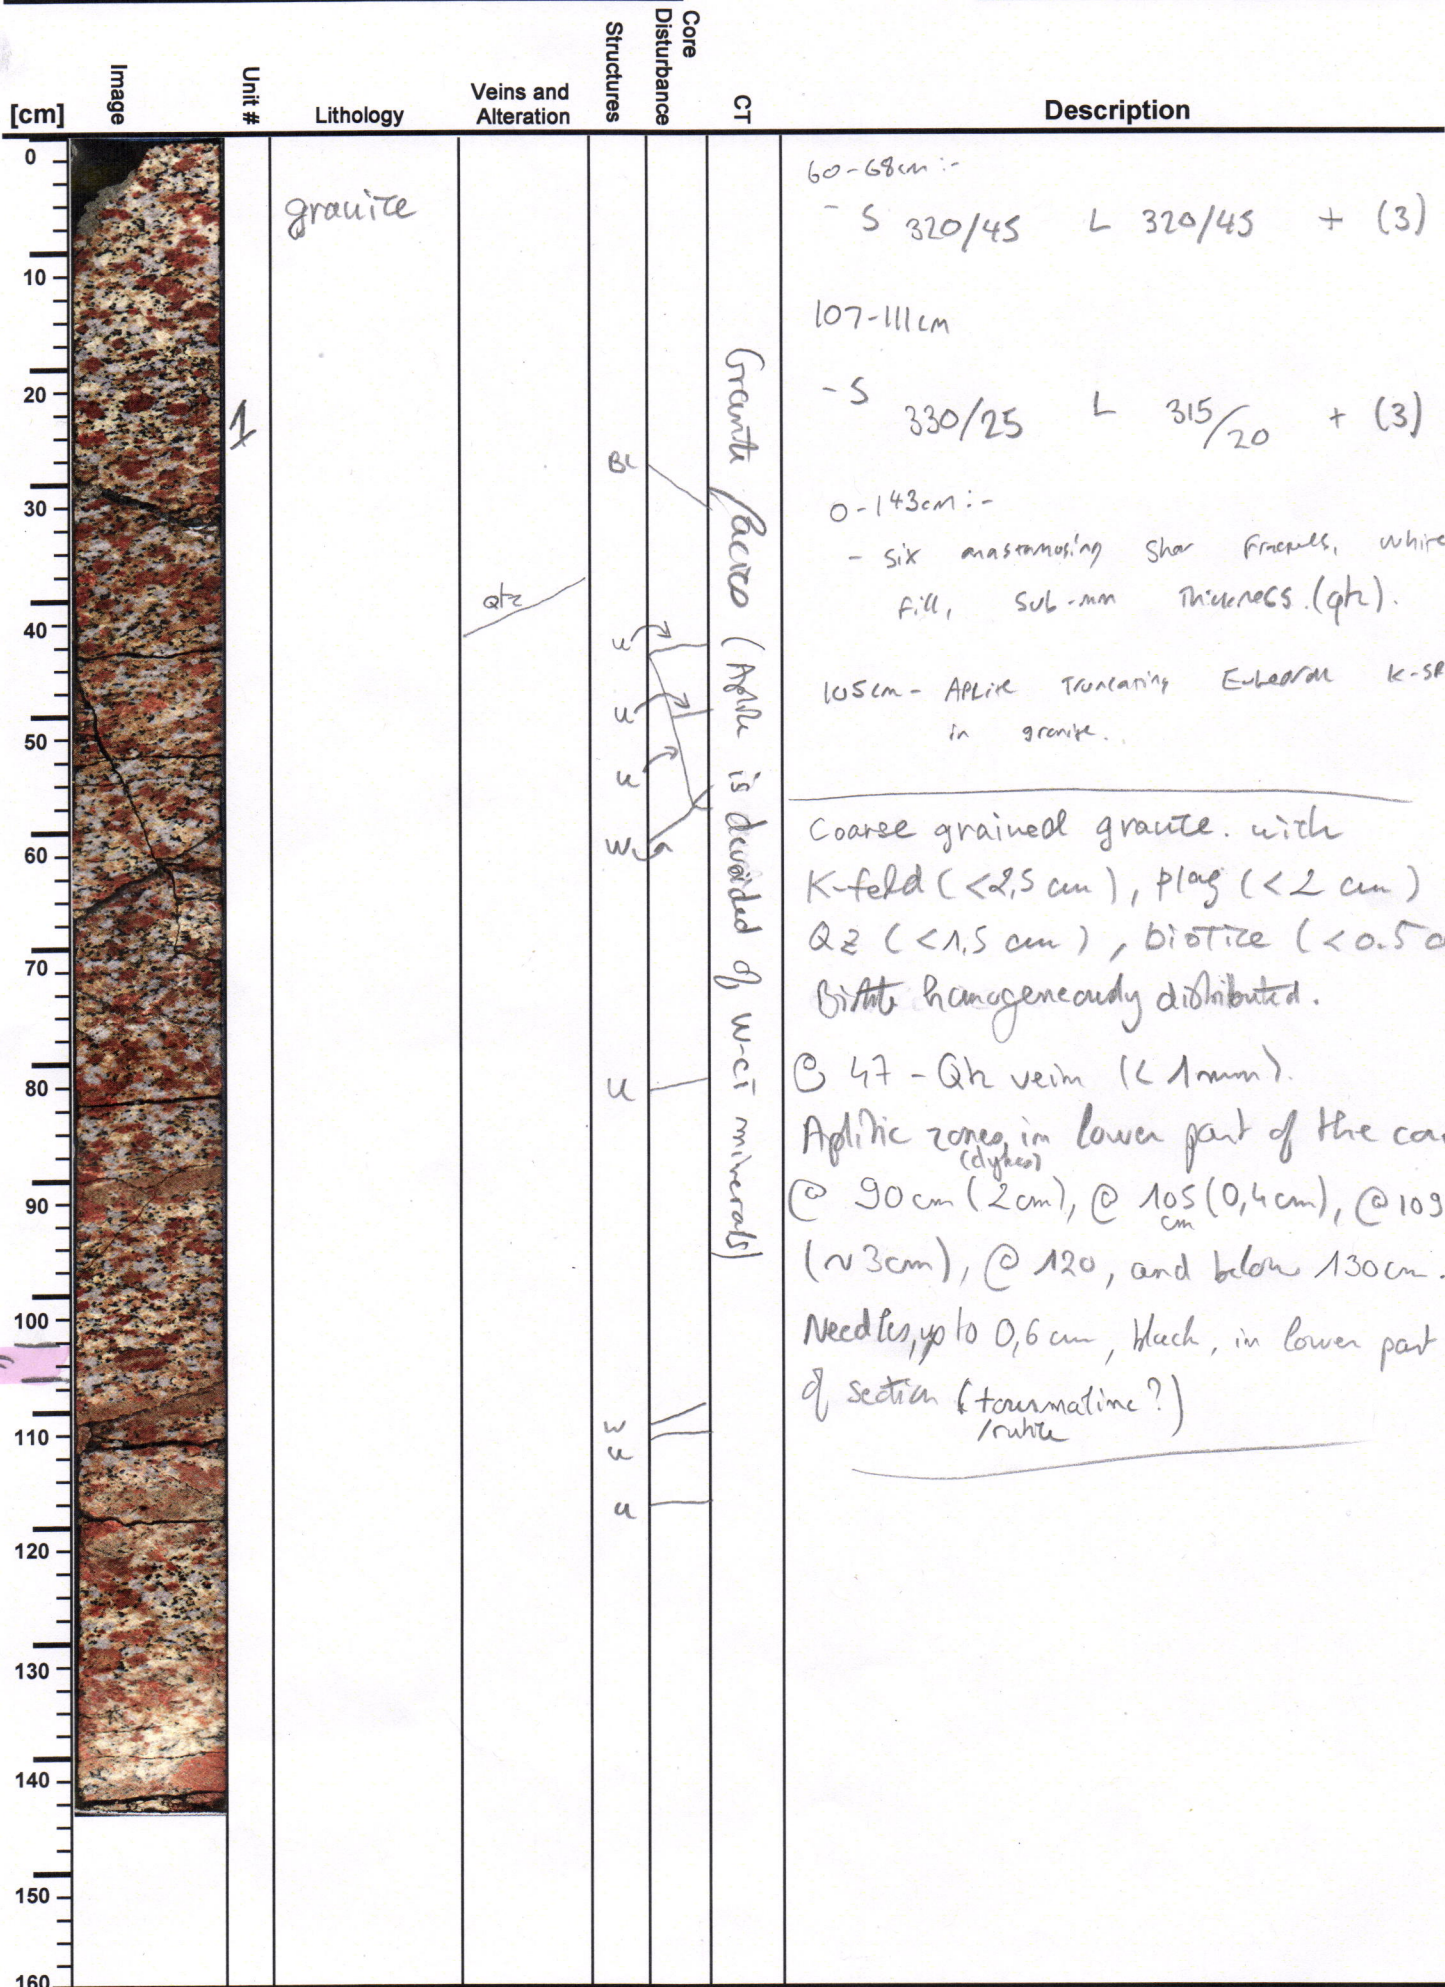 [cm]
Image
Unit #
Lithology
Veins and
Alteration
Structures
Core
Disturbance
CT
Description
0
10
20
30
40
50
60
70
80
90
100
110
120
130
140
150
160
granite
1
Qtz
BL
u
u
u
W
u
w
u
u
Granite facies (Aplite is devoided of W-CT minerals)
60-68cm:-
- S 320/45 L 320/45 + (3)
107-111cm
- S 330/25 L 315/20 + (3)
0-143cm:-
- six anastamosing shar fractures, white
fill, sub-mm thickness. (qtz).
105cm - Aplite Truncating Euhedral K-SP
in granite.
Coarse grained granite. with
K-feld (<2,5 cm), plag (<2 cm)
Qz (<1,5 cm), biotite (<0.5 c
Biotite homogeneously distributed.
@ 47 - Qtz vein (<1mm).
Aplitic zones, in lower part of the cor
(dykes)
@ 90cm (2cm), @ 105 (0,4cm), @ 109
cm
(~3cm), @ 120, and below 130cm.
Needles, up to 0,6 cm, black, in lower part
of section (tourmaline?)
/rutile